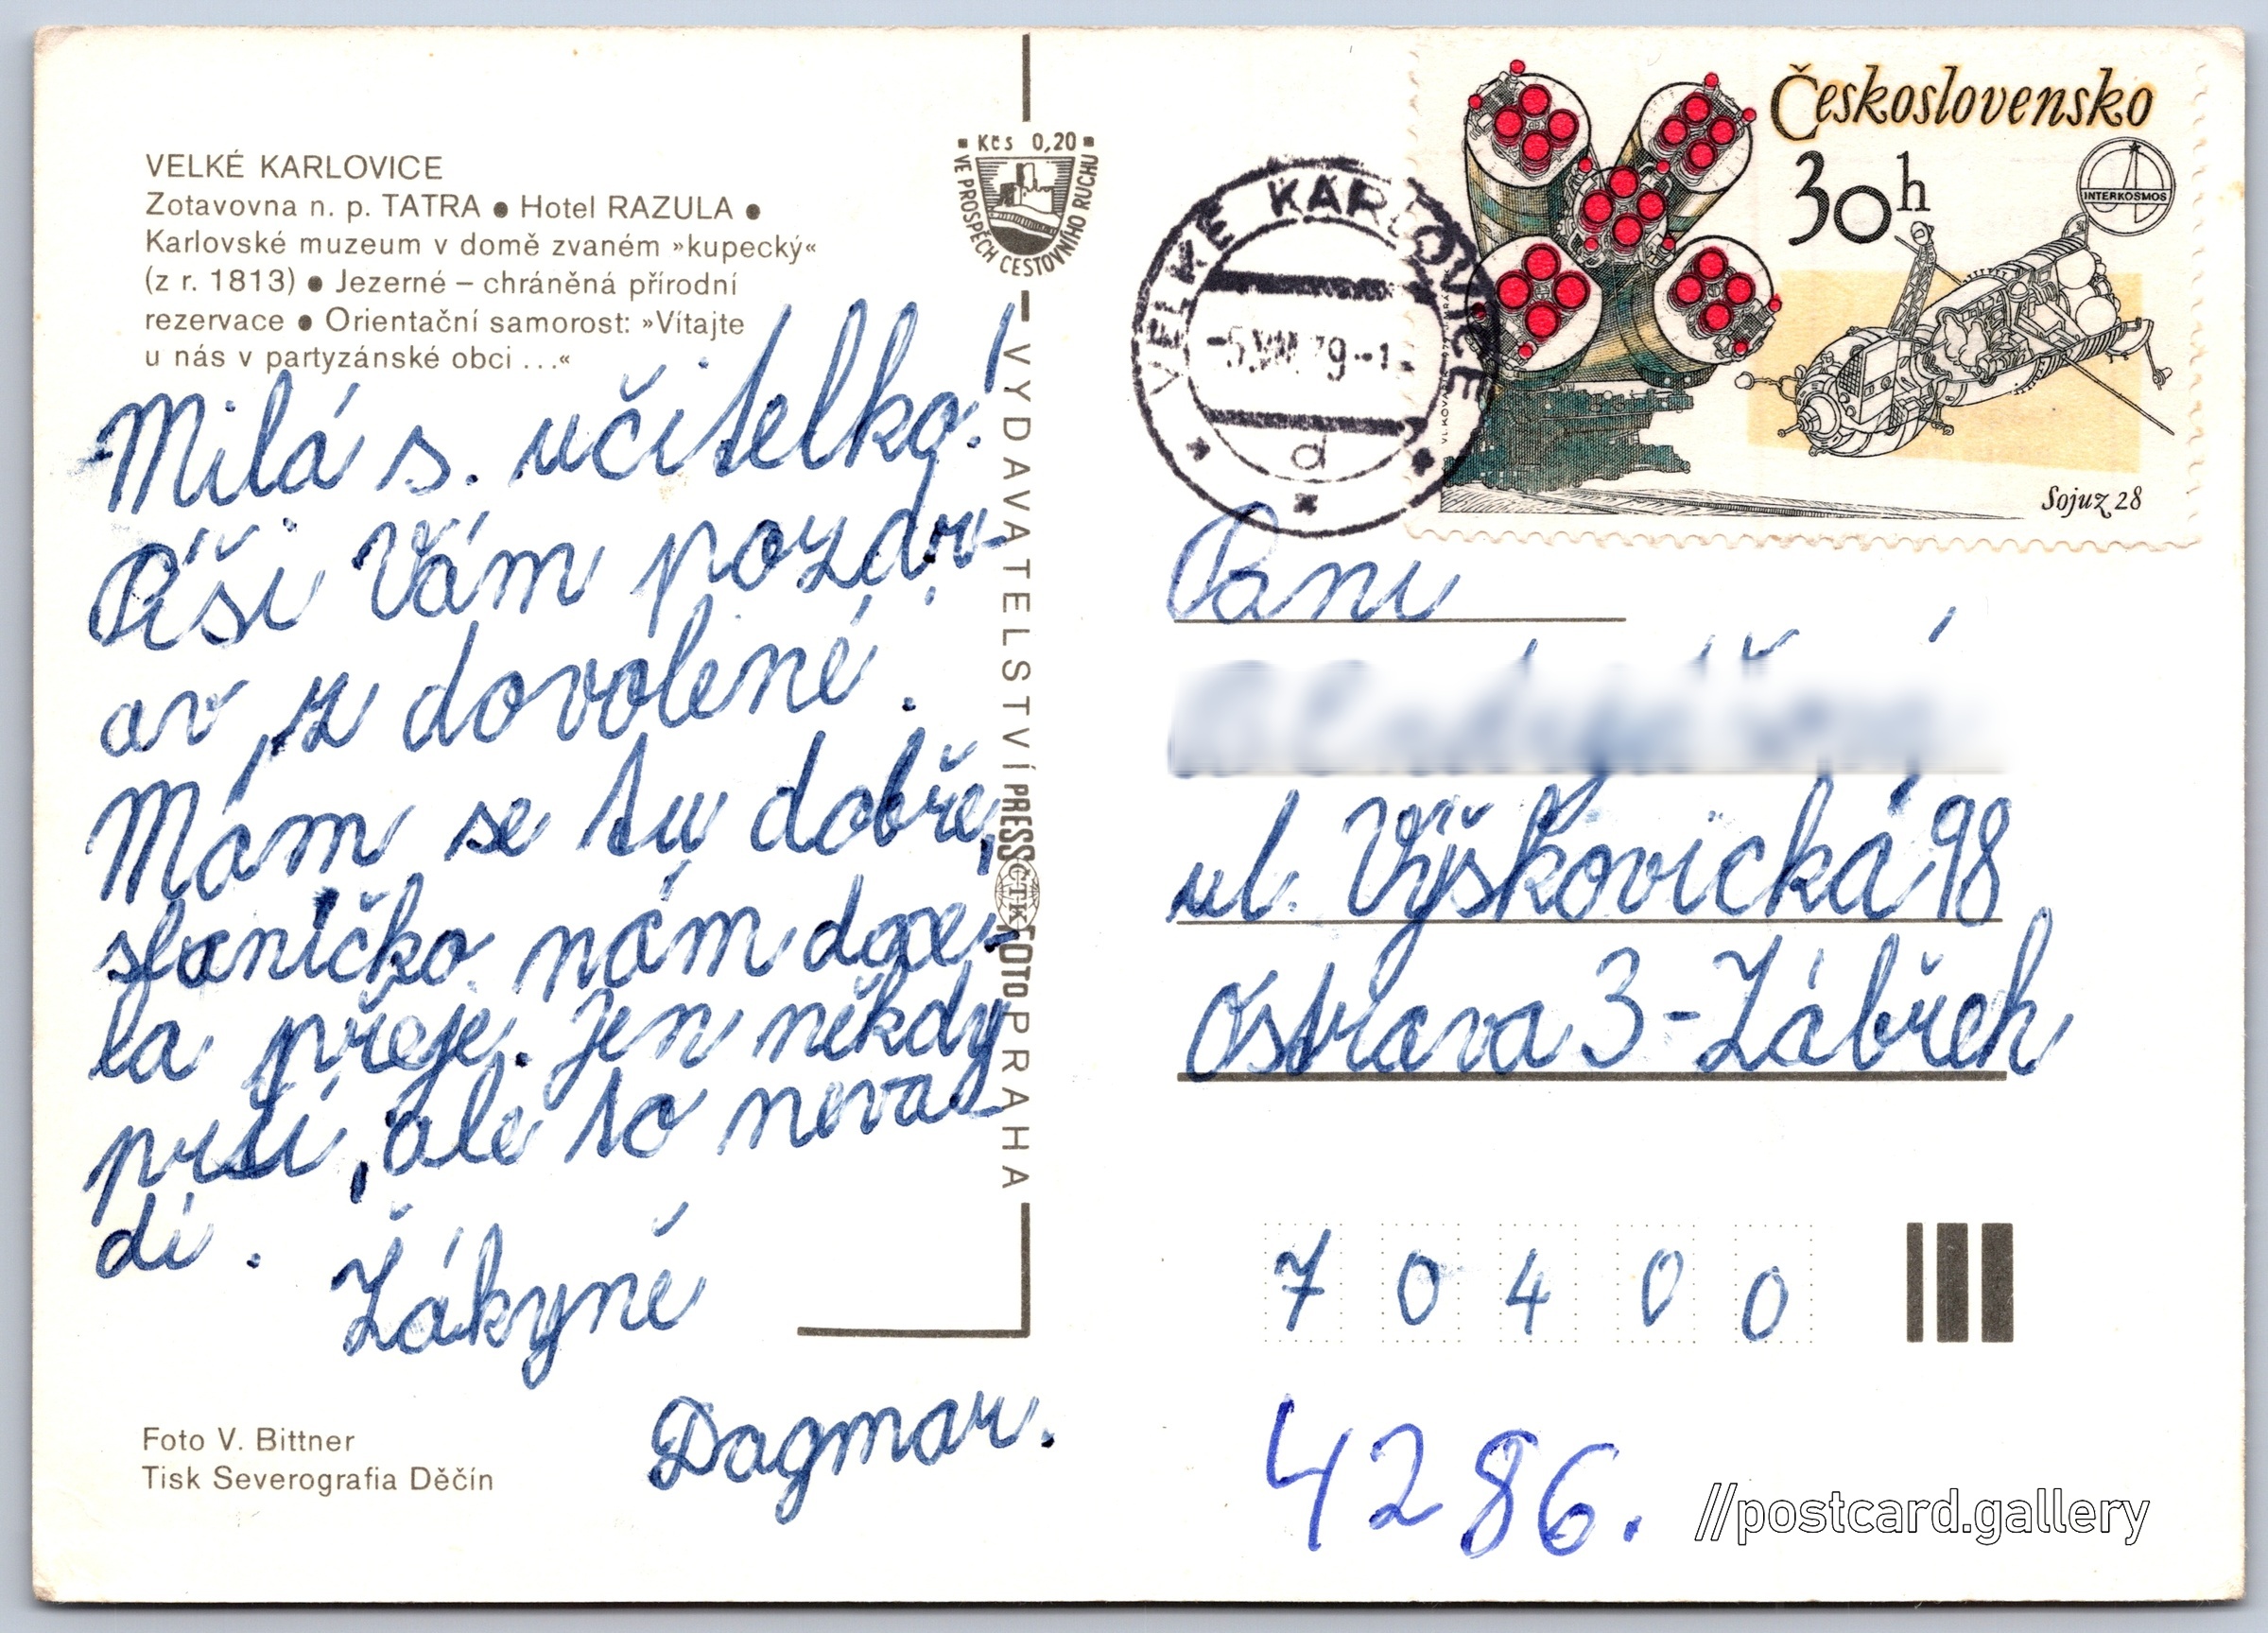 VELKÉ KARLOVICE
Zotavovna n. p. TATRA ● Hotel RAZULA ●
Karlovské muzeum v domě zvaném »kupecký«
(z r. 1813) ● Jezerné – chráněná přírodní
rezervace ● Orientační samorost: »Vítajte
u nás v partyzánské obci ...«
Milá s. učitelko!
Píši Vám pozdr-
av, z dovolené.
Mám se tu dobře,
slaníčko nám doce-
la přeje. Jen někdy
prší, ale to neva-
dí.
Žákyně
Dagmar.
Foto V. Bittner
Tisk Severografia Děčín
Kčs 0,20
VE PROSPĚCH CESTOVNÍHO RUCHU
VYDAVATELSTVÍ PRESSFOTO PRAHA
ČTK
VELKÉ KARLOVICE
-5.VIII.79--1
d
Československo
30h
INTERKOSMOS
Sojuz 28
Pani
ul. Výškovická 98
Ostrava 3-Zábřeh
7 0 4 0 0
4286.
//postcard.gallery